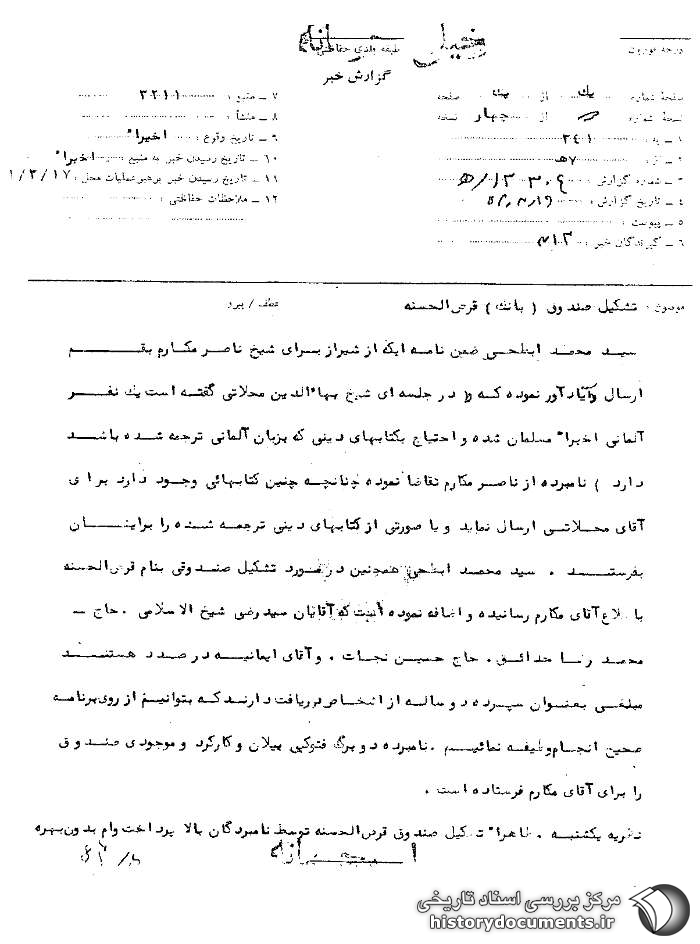 خیلی محرمانه
درجه فوریت
طبقه بندی حفاظتی
گزارش خبر
صفحه شماره یک از یک صفحه
نسخه شماره از چهار نسخه
۱ ـ به : ۳۴۱
۲ ـ از : ۷ه
۳ ـ شماره گزارش : ۱۳۳۰۹/ه
۴ ـ تاریخ گزارش :
۵ ـ پیوست :
۶ ـ گیرندگان خبر : ۳۱۲
۷ ـ منبع : ۳۲۱۱
۸ ـ منشأ :
۹ ـ تاریخ وقوع : اخیرا"
۱۰ ـ تاریخ رسیدن خبر به منبع اخیرا"
۱۱ ـ تاریخ رسیدن خبر برهبر عملیات محل : ۱/۳/۱۷
۱۲ ـ ملاحظات حفاظتی :
موضوع : تشکیل صندوق ( بانک ) قرض الحسنه
عطف / پیرو
سید محمد ابطحی ضمن نامه ایکه از شیراز برای شیخ ناصر مکارم بقم
ارسال و یاد آور نموده که ( در جلسه ای شیخ بهاءالدین محلاتی گفته است یک نفر
آلمانی اخیرا" مسلمان شده و احتیاج بکتابهای دینی که بزبان آلمانی ترجمه شده باشد
دارد ) نامبرده از ناصر مکارم تقاضا نموده چنانچه چنین کتابهائی وجود دارد برای
آقای محلاتی ارسال نماید و یا صورتی از کتابهای دینی ترجمه شده را برایشان
بفرستد . سید محمد ابطحی همچنین در مورد تشکیل صندوقی بنام قرض الحسنه
باطلاع آقای مکارم رسانیده و اضافه نموده است که آقایان سید رضی شیخ الاسلامی . حاج ـ
محمد رضا حدائق . حاج حسین نجات . و آقای ایمانیه در صدد هستند
مبلغی بعنوان سپرده دو ساله از اشخاص دریافت دارند که بتوانیم از روی برنامه
صحیح انجام وظیفه نمائیم . نامبرده دو برگ فتوکپی بیلان و کارکرد و موجودی صندوق
را برای آقای مکارم فرستاده است .
نظریه یکشنبه . ظاهرا" تشکیل صندوق قرض الحسنه توسط نامبردگان بالا پرداخت وام بدون بهره
مرکز بررسی اسناد تاریخی
historydocuments.ir